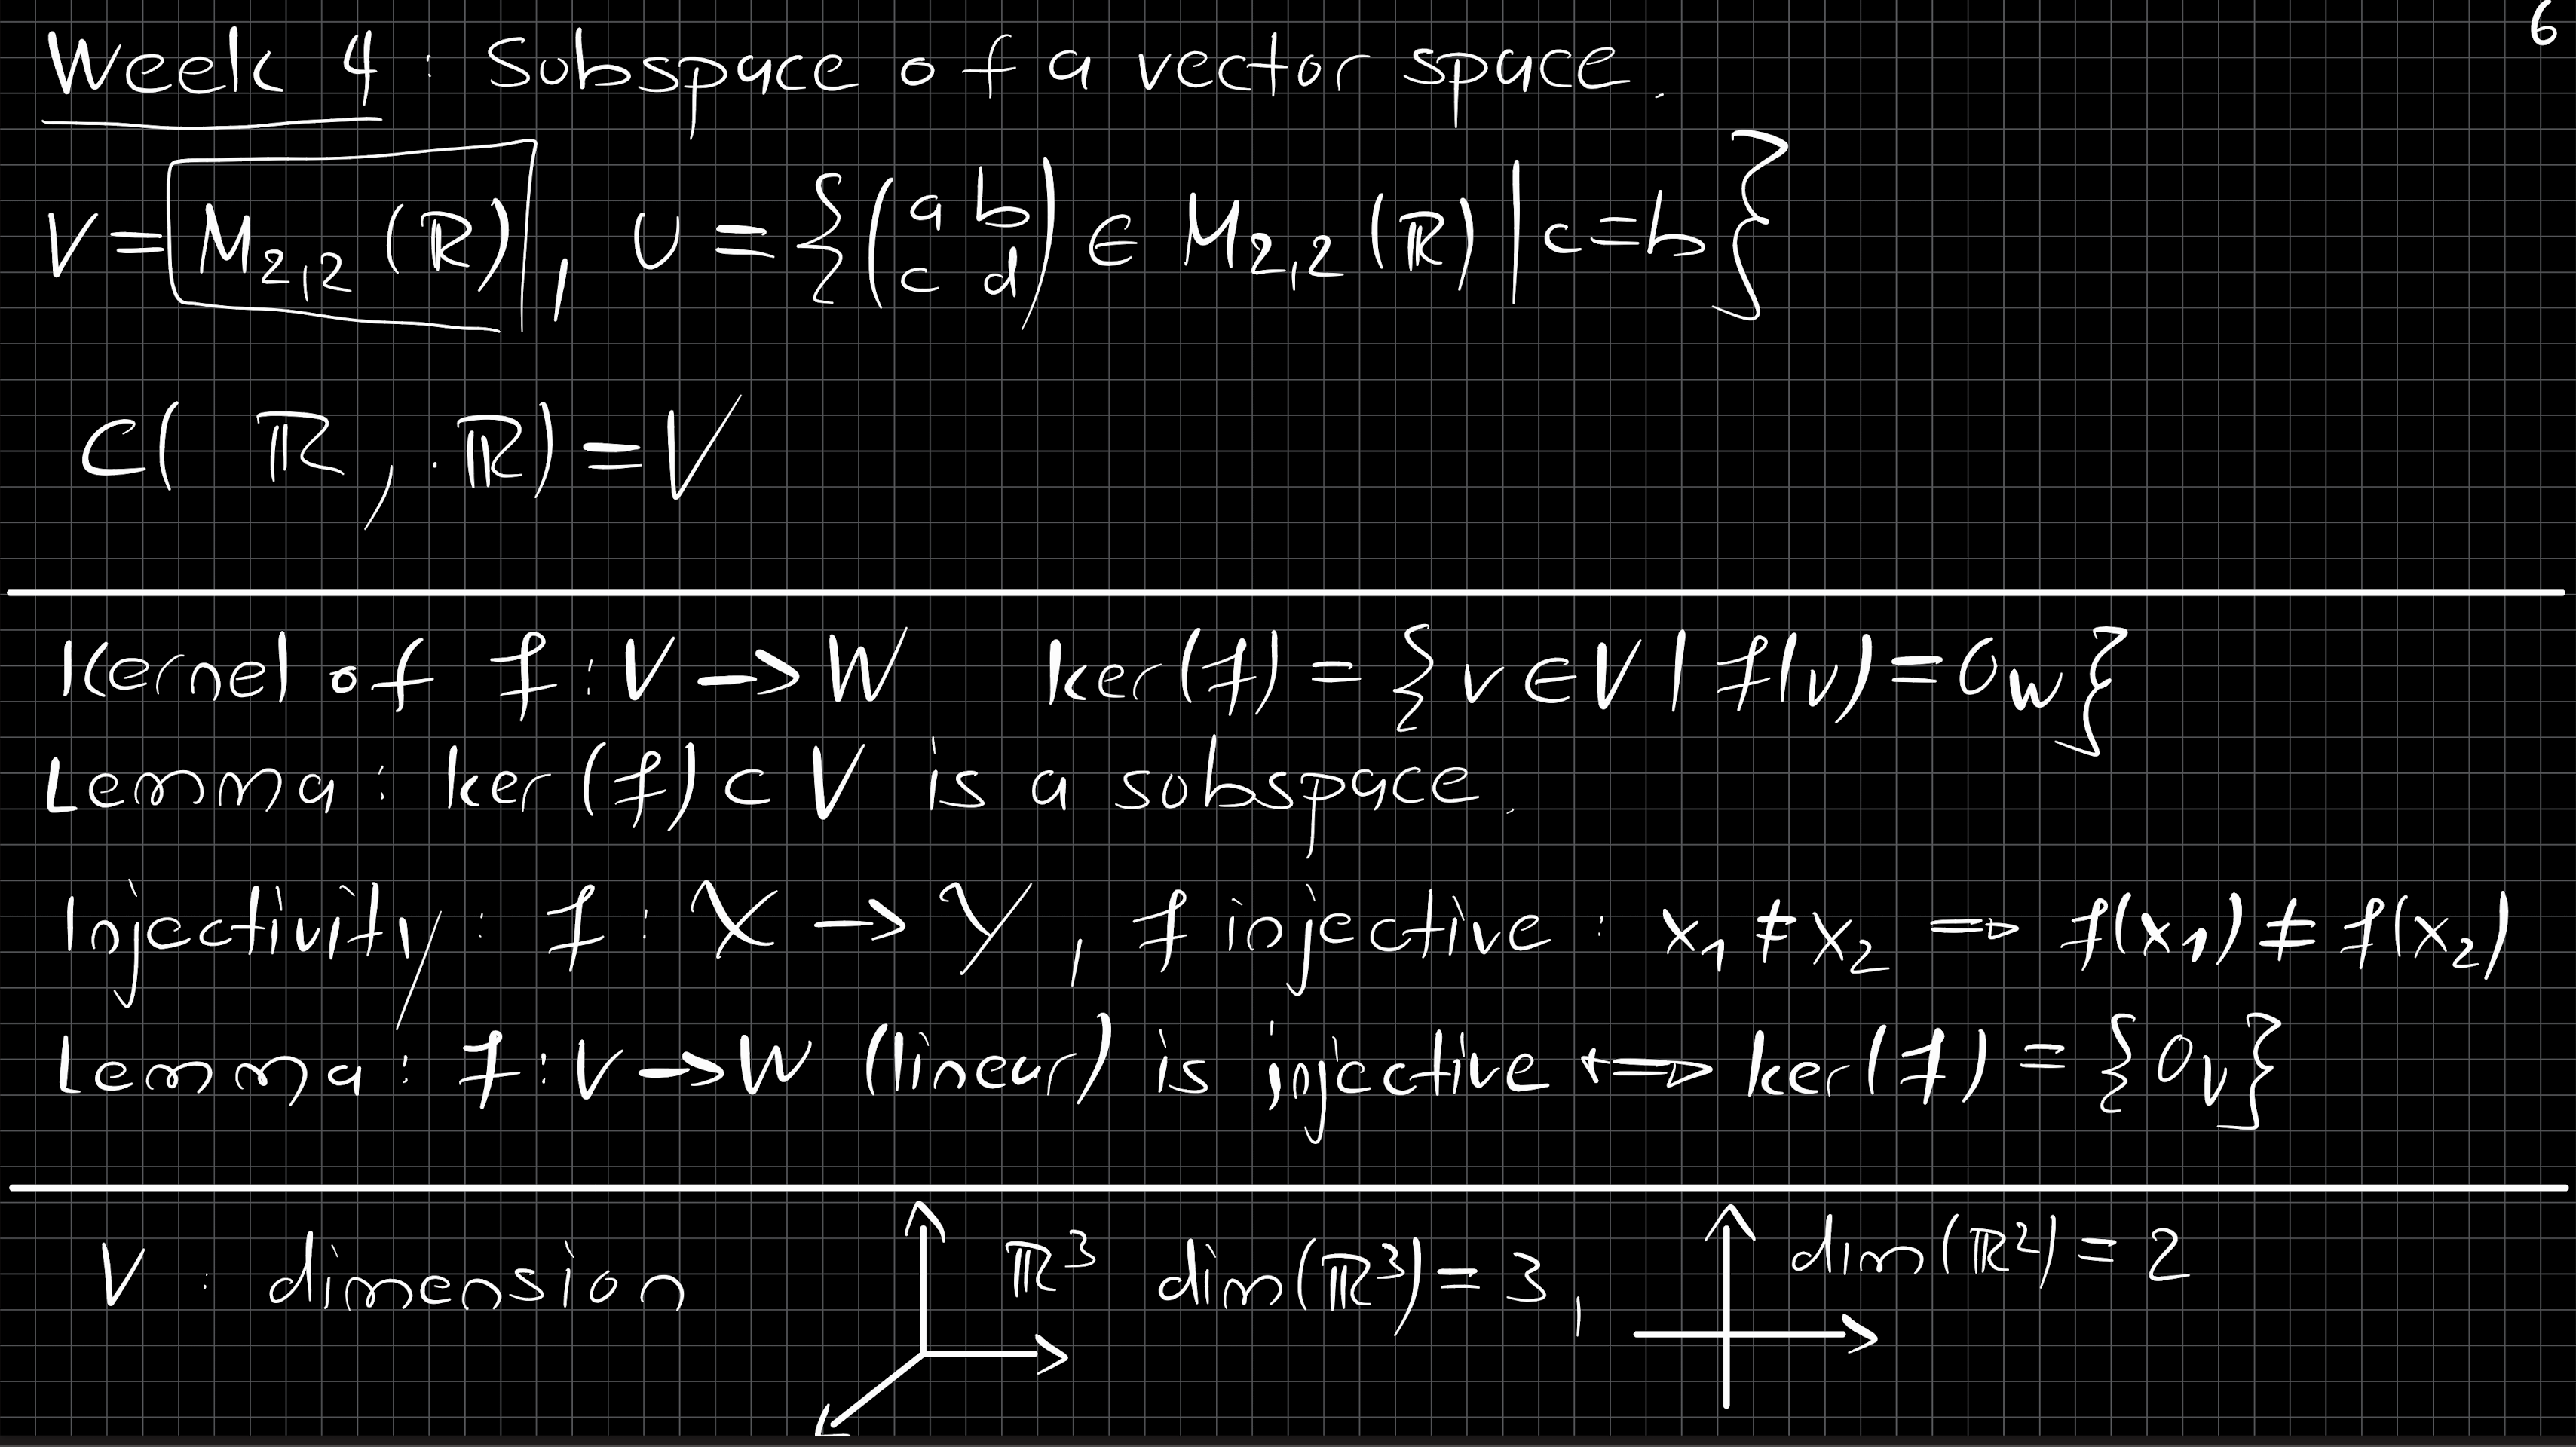 6
Week 4 : Subspace of a vector space.
V = M₂,₂ (ℝ) , U = {(a b c d) ∈ M₂,₂ (ℝ) | c = b}
C( ℝ , ℝ) = V
Kernel of f : V → W ker(f) = {v ∈ V | f(v) = 0_W}
Lemma : ker(f) ⊂ V is a subspace.
Injectivity : f : X → Y , f injective : x₁ ≠ x₂ ⇒ f(x₁) ≠ f(x₂)
Lemma : f : V → W (linear) is injective ⟺ ker(f) = {0_V}
V : dimension ℝ³ dim(ℝ³) = 3, dim(ℝ²) = 2